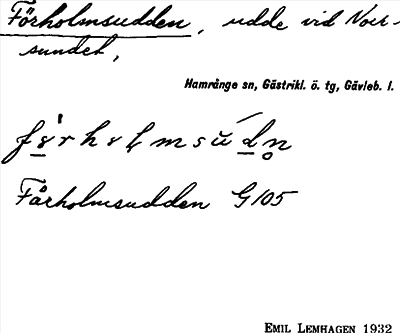 Förholmsudden, udde vid Norr-
sundet,
Hamrånge sn, Gästrikl. ö. tg, Gävleb. l.
Fårholmsudden G 105
EMIL LEMHAGEN 1932